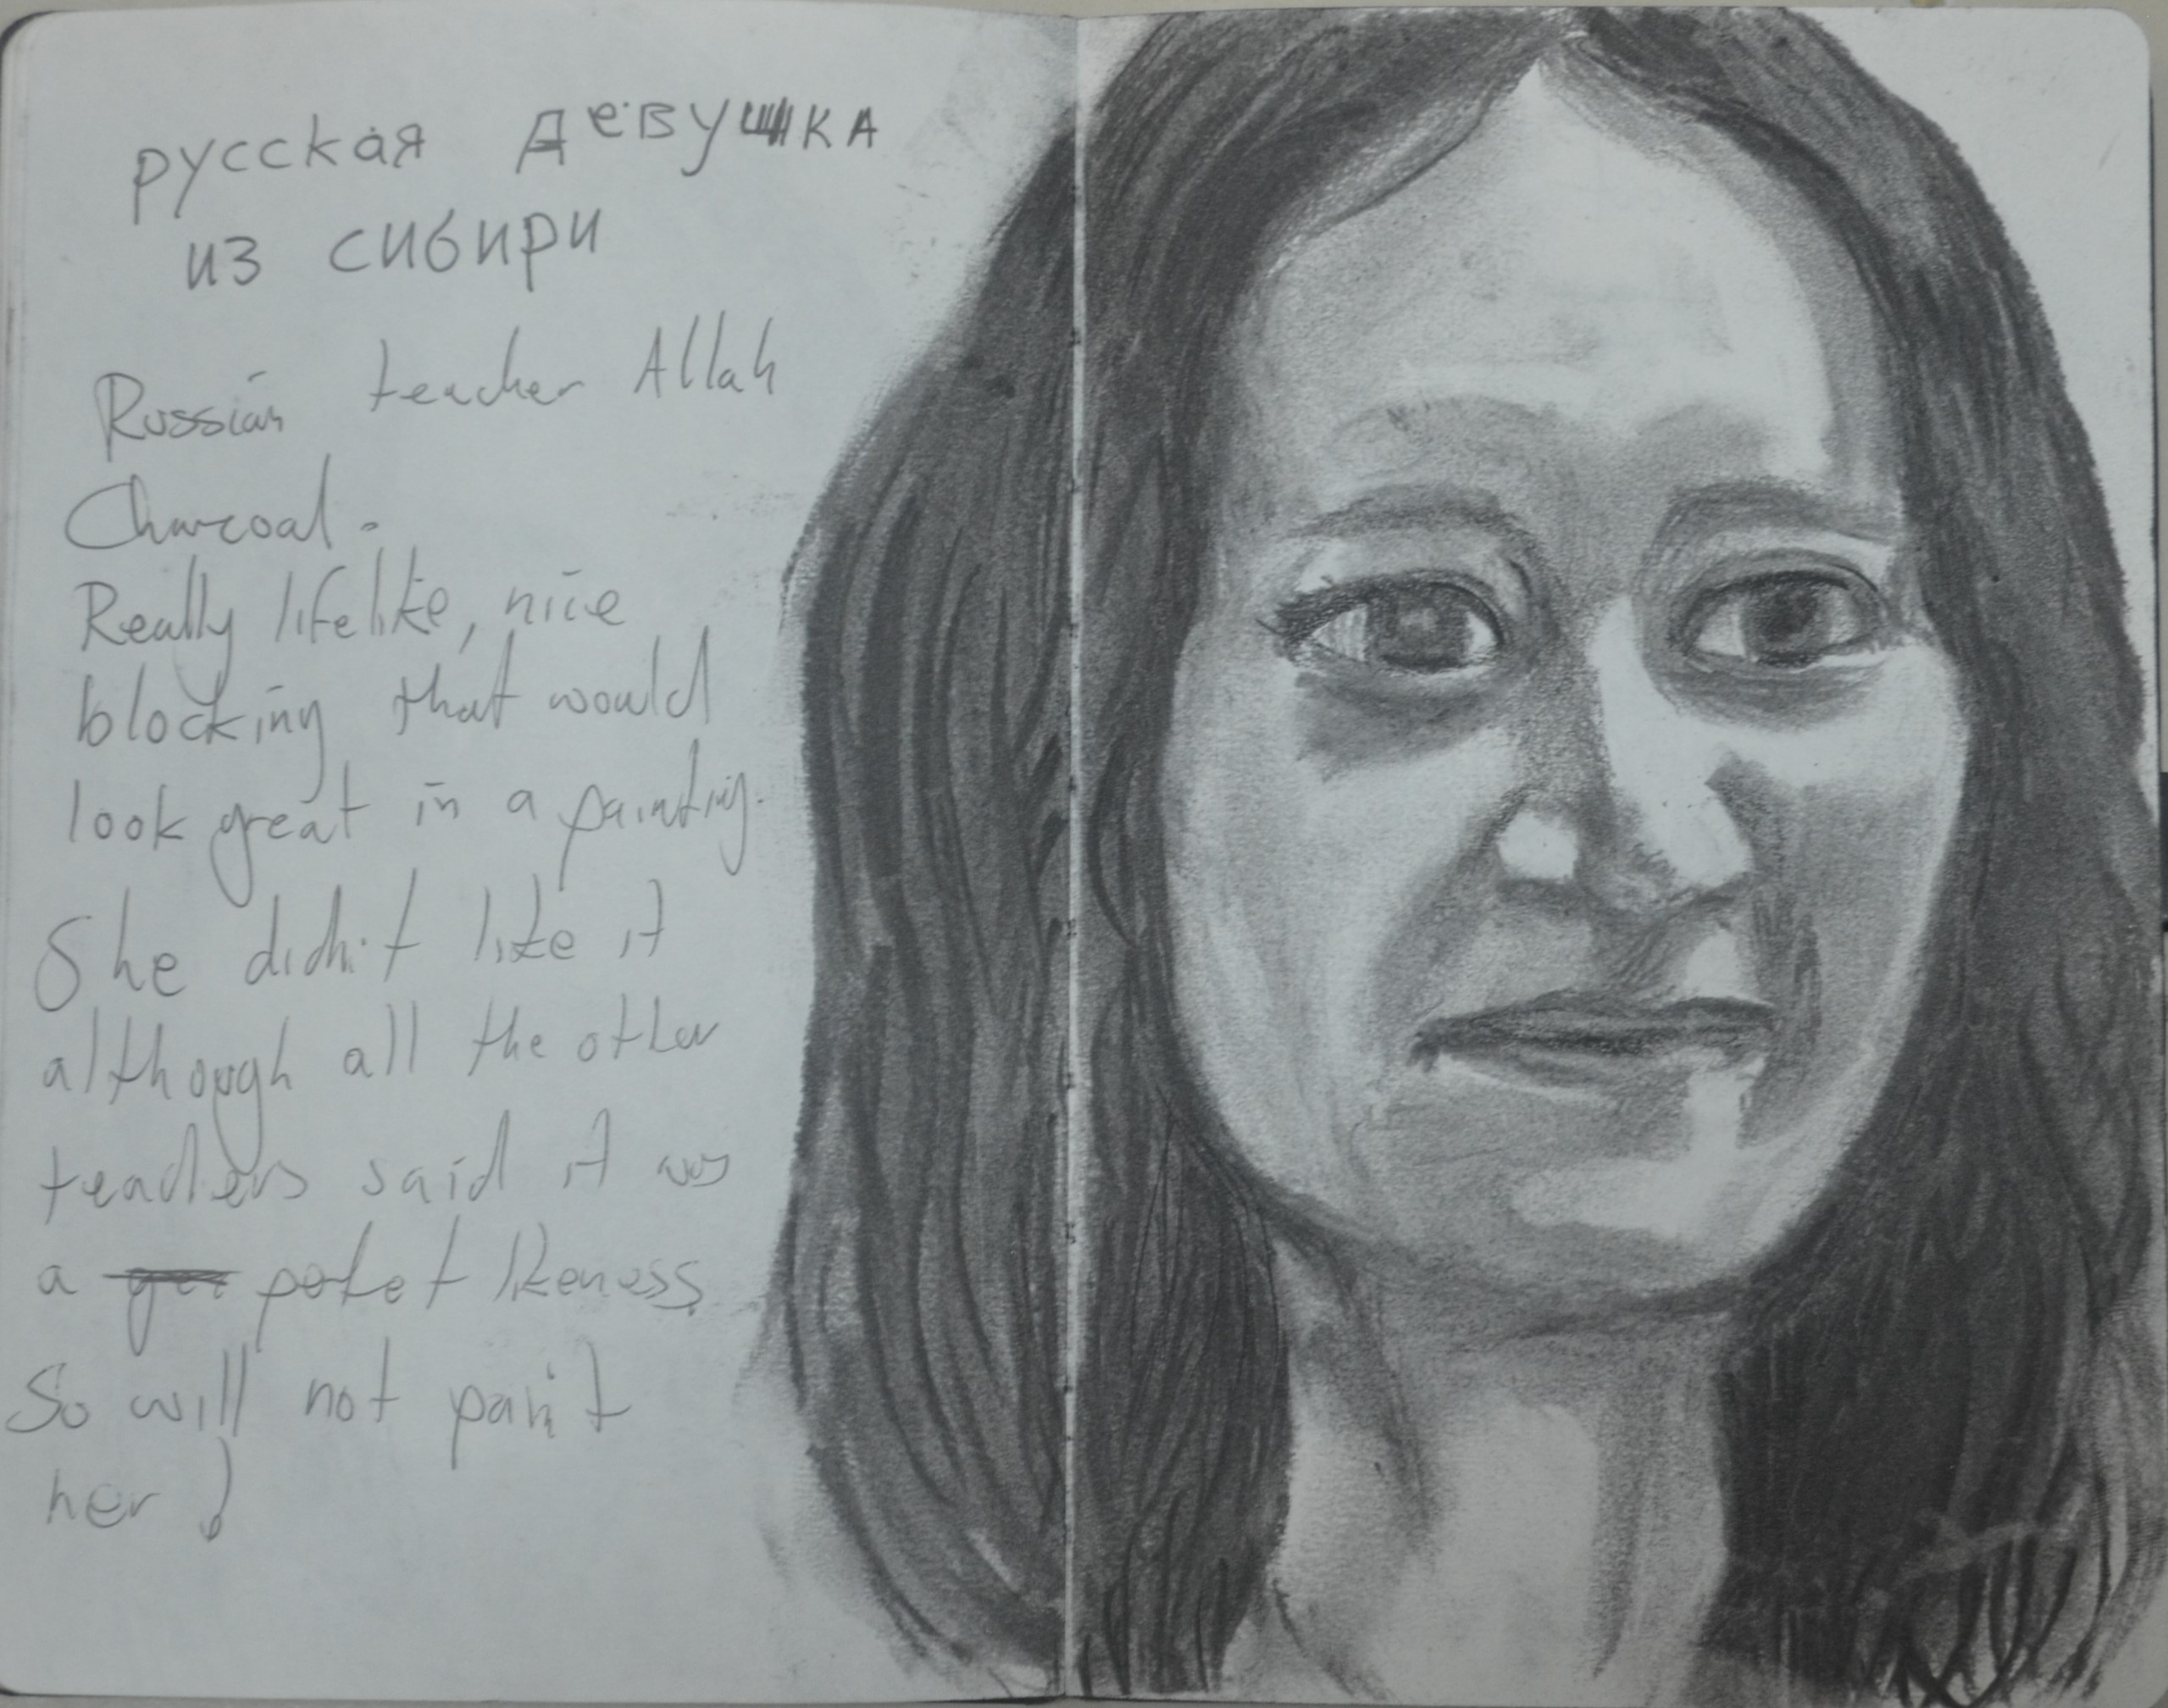 русская девушка
из сибири
Russian teacher Allah
Charcoal.
Really lifelike, nice
blocking that would
look great in a painting.
She didn't like it
although all the other
teachers said it was
a likeness
So will not paint
her